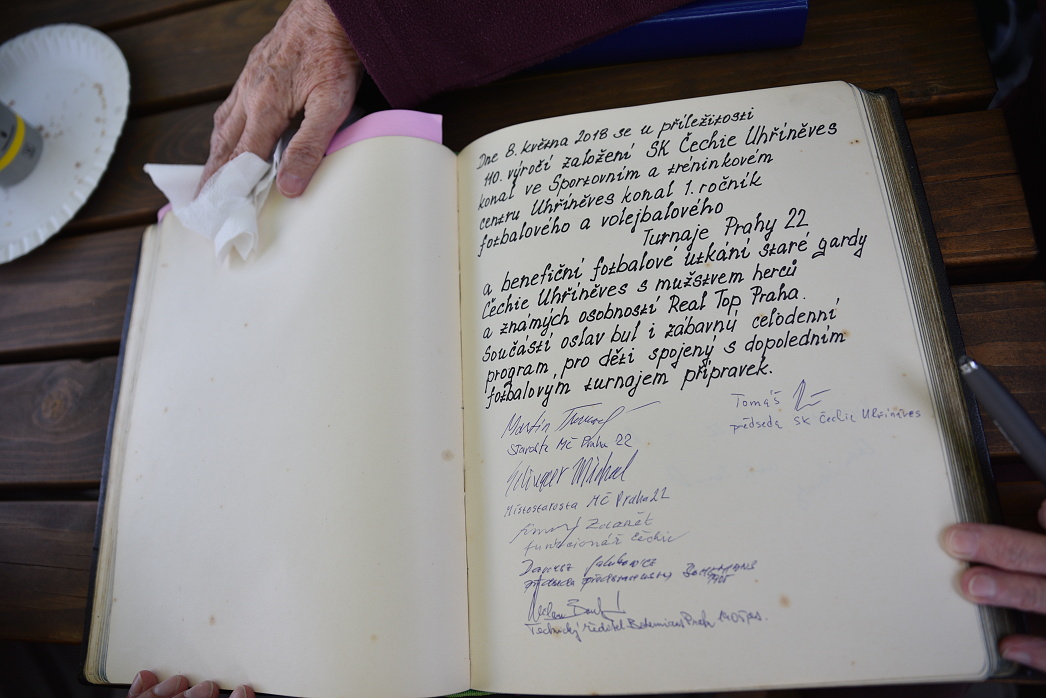 Dne 8. května 2018 se u příležitosti
110. výročí založení SK Čechie Uhříněves
konal ve Sportovním a tréninkovém
centru Uhříněves konal 1. ročník
fotbalového a volejbalového
Turnaje Prahy 22
a benefiční fotbalové utkání staré gardy
Čechie Uhříněves s mužstvem herců
a známých osobností Real Top Praha.
Součástí oslav byl i zábavný celodenní
program pro děti spojený s dopoledním
fotbalovým turnajem přípravek.
Tomáš
předseda SK Čechie Uhříněves
Martin
Starosta MČ Praha 22
Michal
Místostarosta MČ Praha 22
Zdeněk
funkcionář Čechie
Dariusz Jakubowicz
předseda představenstva Bohemians
1905
Technický ředitel Bohemians Praha 1905 a.s.